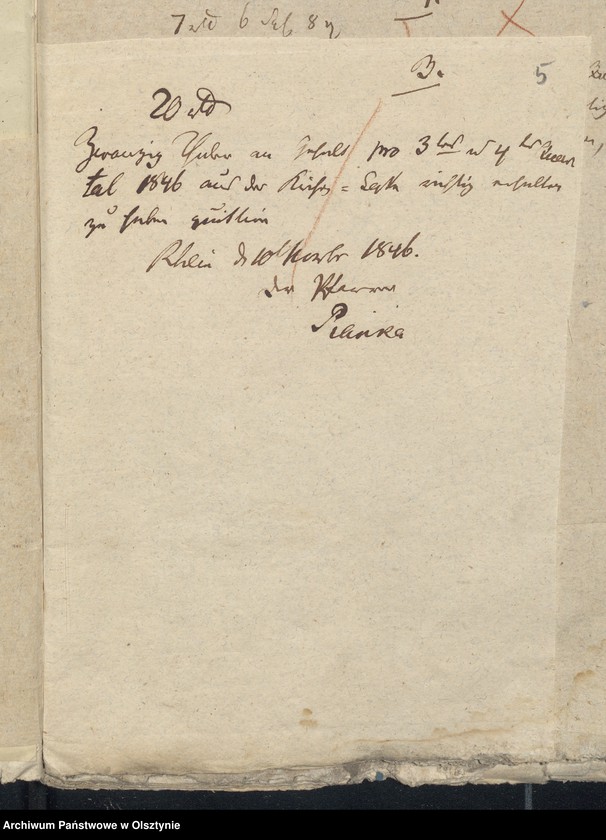 7 rtl 6 Sgr 8 d
B. 5
20 rtl
Zwanzig Thaler an Gehalt pro 3tes u 4tes Quar
tal 1846 aus der Kirchen=Casse richtig erhalten
zu haben quittire
Rhein d 10t Novbr 1846.
der Pfarrer
Pianka
Archiwum Państwowe w Olsztynie